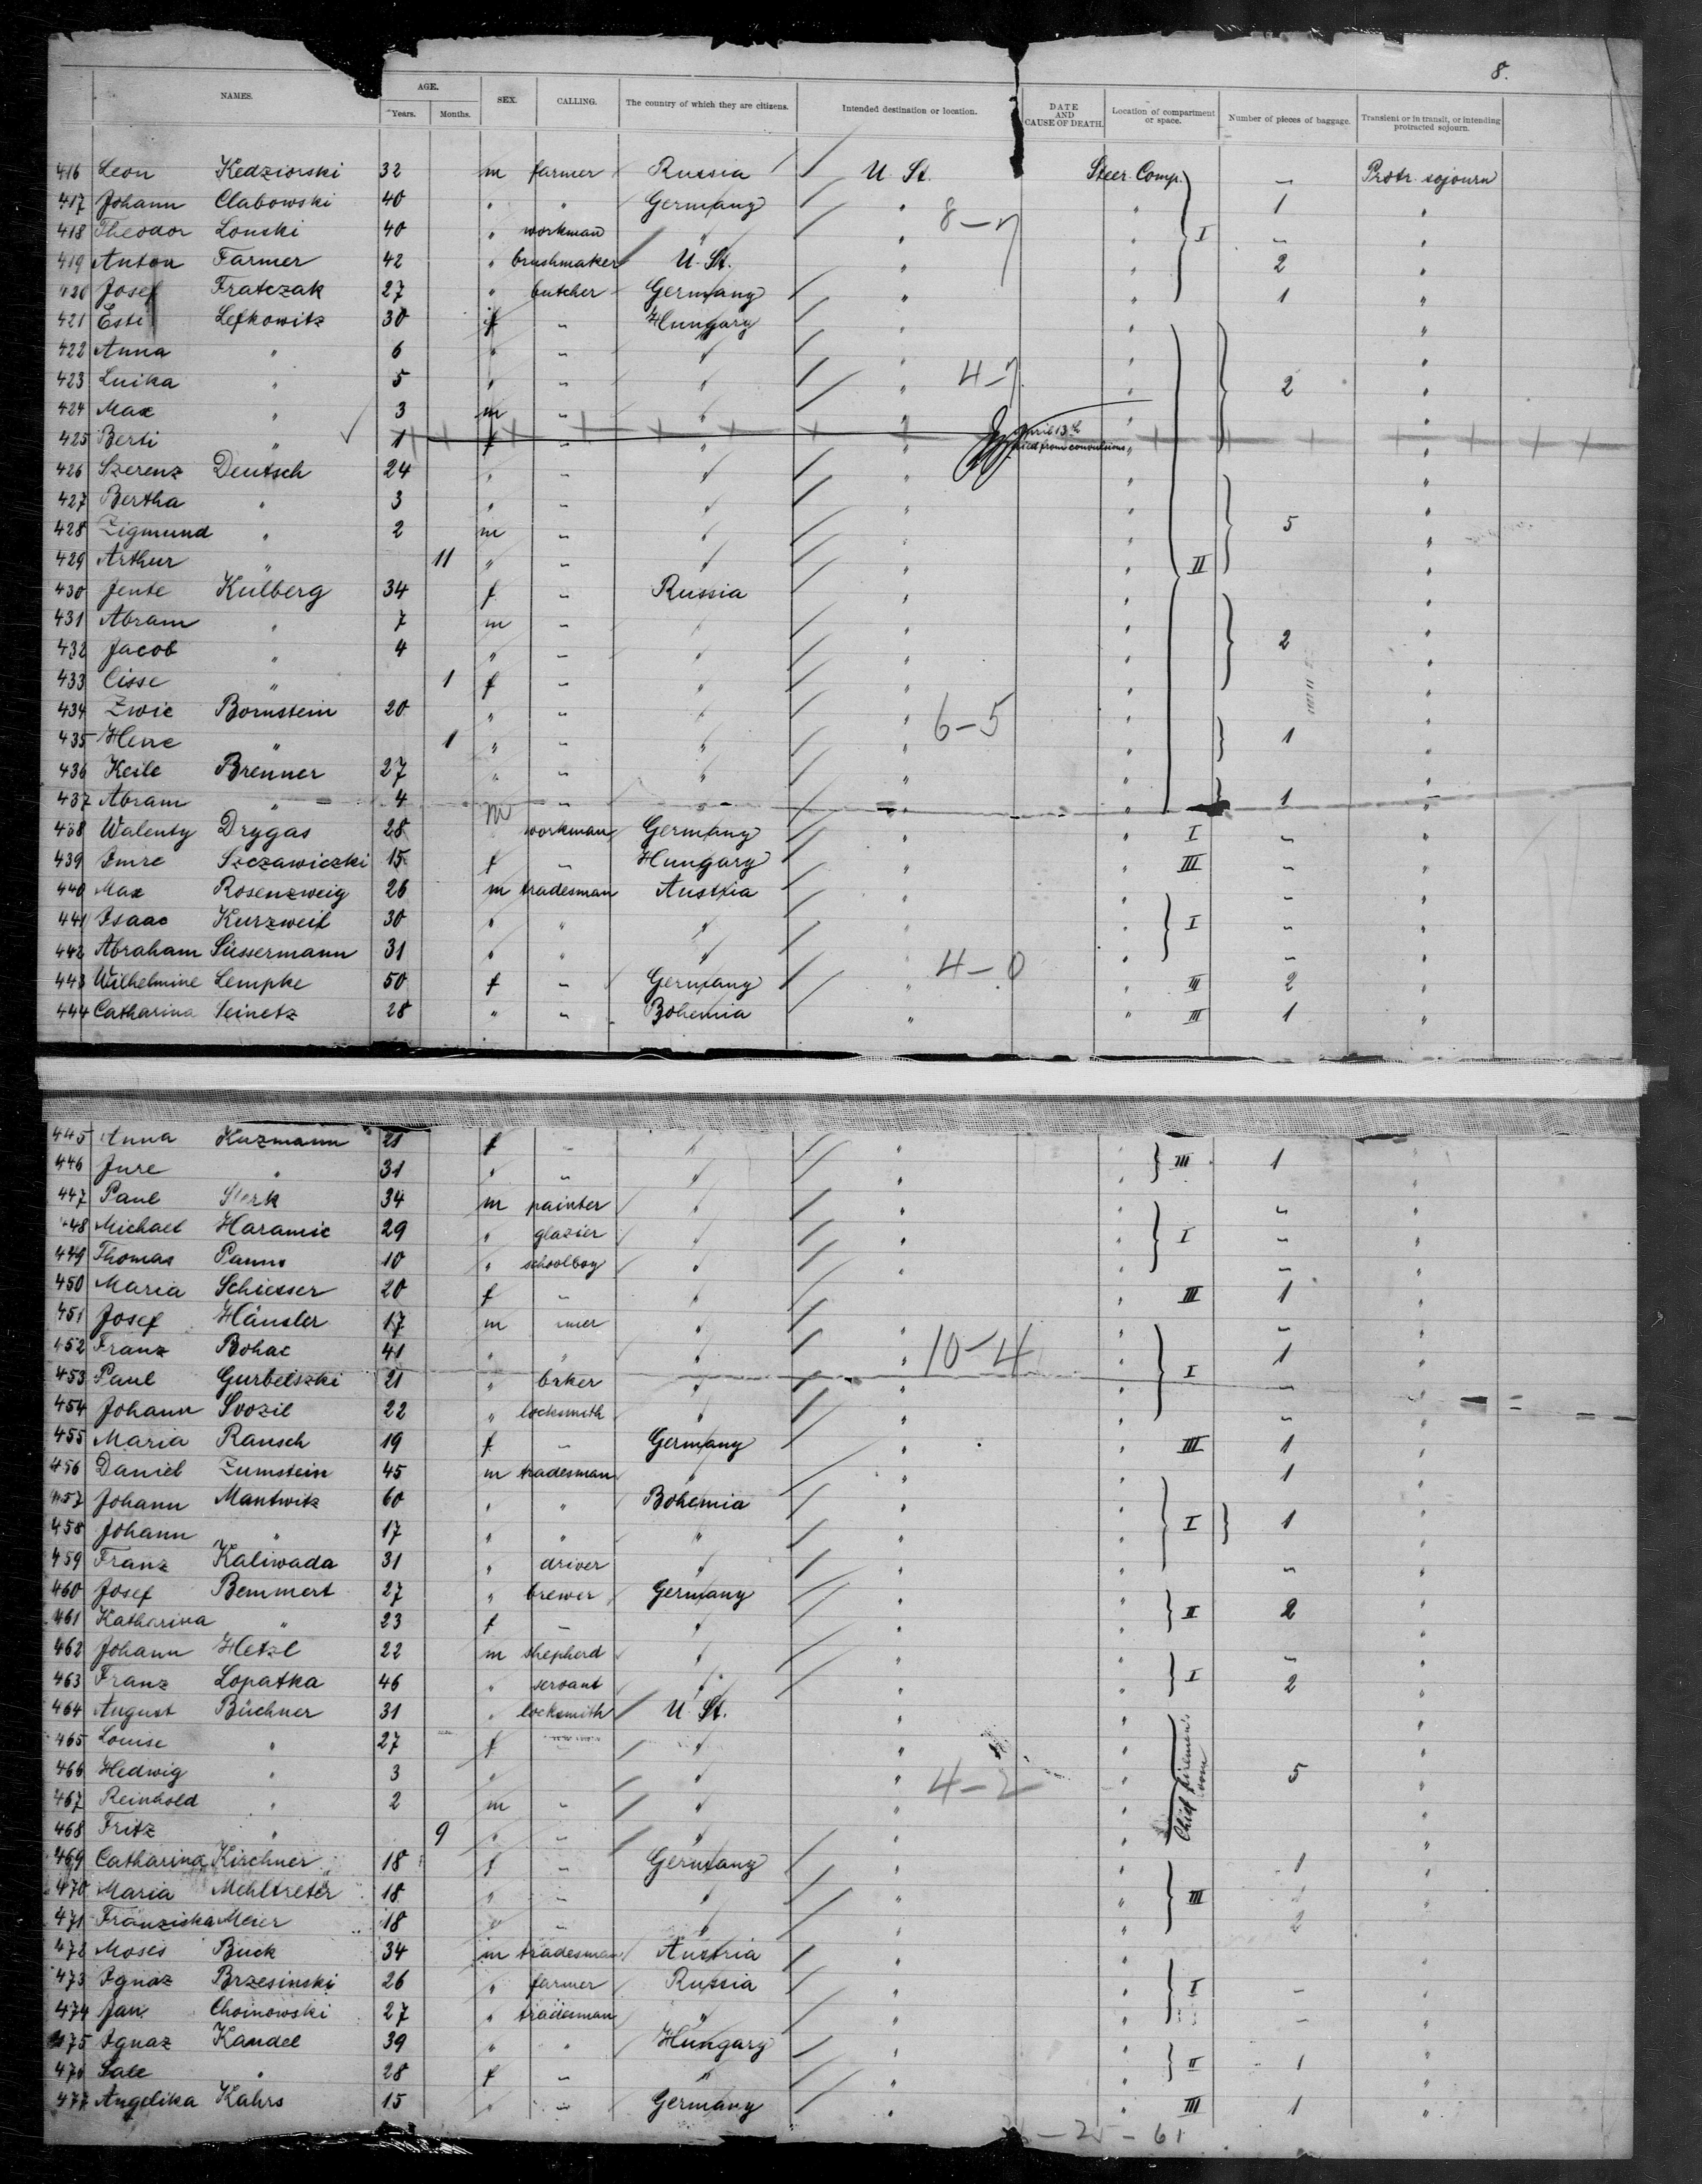 8.
NAMES. AGE. Years. Months. SEX. CALLING. The country of which they are citizens. Intended destination or location. DATE AND CAUSE OF DEATH. Location of compartment or space. Number of pieces of baggage. Transient or in transit, or intending protracted sojourn.
416 Leon Kedziorski 32 m farmer Russia U. St. Steer. Comp. – Protr. sojourn
417 Johann Clabowski 40 " " Germany " " 1 "
8–7
418 Theodor Lonski 40 " workman " " " I – "
419 Anton Farmer 42 " brushmaker U. St. " " 2 "
420 Josef Fratczak 27 " butcher Germany " " 1 "
421 Esti Lefkowitz 30 f – Hungary " " "
422 Anna " 6 " – " " " "
423 Luika " 5 " – " " 4–7 " 2 "
424 Max " 3 m – " " " "
425 Berti " 1 f – " " April 13th died from convulsions " "
426 Szerenz Deutsch 24 " – " " " "
427 Bertha " 3 " – " " " "
428 Zigmund " 2 m – " " " 5 "
429 Arthur " 11 " – " " " II "
430 Jente Külberg 34 f – Russia " " "
431 Abram " 7 m – " " " "
432 Jacob " 4 " – " " " 2 "
433 Cisse " 1 f – " " " "
434 Zwie Bornstein 20 " – " " 6–5 " "
435 Hene " 1 " – " " " 1 "
436 Keile Brenner 27 " – " " " "
437 Abram " 4 m – " " " 1 "
438 Walenty Drygas 28 workman Germany " " I – "
439 Imre Szczawiczki 15 f – Hungary " " III – "
440 Max Rosenzweig 26 m tradesman Austria " " – "
441 Isaac Kurzweil 30 " " " " " I – "
442 Abraham Süssermann 31 " " " " 4–0 " – "
443 Wilhelmine Lempke 50 f – Germany " " III 2 "
444 Catharina Seinetz 28 " – Bohemia " " III 1 "
445 Anna Kuzmann 21 f – " " " "
446 Jure " 31 " – " " " III 1 "
447 Paul Sterk 34 m painter " " " – "
448 Michael Haramic 29 " glazier " " " I – "
449 Thomas Panns 10 " schoolboy " " " – "
450 Maria Schiesser 20 f – " " " III 1 "
451 Josef Häusler 17 m " " " – "
452 Franz Bohac 41 " " " " 10–4 " 1 "
453 Paul Gurbelszki 21 " baker " " " I – "
454 Johann Svozil 22 " locksmith " " " – "
455 Maria Rausch 19 f – Germany " " III 1 "
456 Daniel Zumstein 45 m tradesman " " " 1 "
457 Johann Mantwitz 60 " " Bohemia " " "
458 Johann " 17 " " " " " I 1 "
459 Franz Kaliwada 31 " driver " " " – "
460 Josef Bemmert 27 " brewer Germany " " "
461 Katharina " 23 f – " " " II 2 "
462 Johann Hetzl 22 m shepherd " " " – "
463 Franz Lopatka 46 " servant " " " I 2 "
464 August Büchner 31 " locksmith U. St. " " "
465 Louise " 27 f – " " " "
466 Hedwig " 3 " " " 4–2 " Chief firemen's room 5 "
467 Reinhold " 2 m – " " " "
468 Fritz " 9 " – " " " "
469 Catharina Kirchner 18 f – Germany " " 1 "
470 Maria Mehltreter 18 " – " " " III "
471 Franziska Meier 18 " – " " " 2 "
472 Moses Buck 34 m tradesman Austria " " "
473 Ignaz Brzesinski 26 " farmer Russia " " I – "
474 Jan Choinowski 27 " tradesman " " " – "
475 Ignaz Kandel 39 " " Hungary " " "
476 Sale " 28 f – " " " II 1 "
477 Angelika Kahrs 15 " – Germany " " III 1 "
– 25 – 61